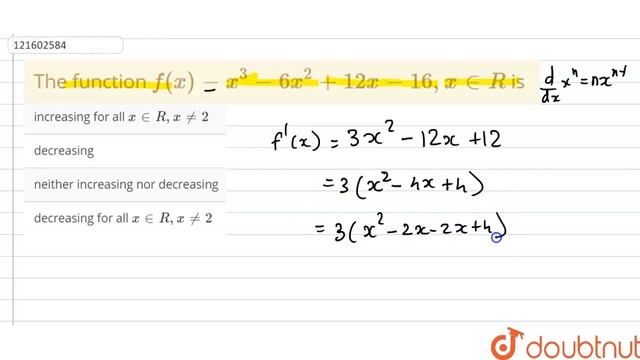 121602584
The function f(x) = x³ − 6x² + 12x − 16, x ∈ R is
d/dx xⁿ = nxⁿ⁻¹
increasing for all x ∈ R, x ≠ 2
decreasing
neither increasing nor decreasing
decreasing for all x ∈ R, x ≠ 2
f'(x) = 3x² − 12x + 12
= 3(x² − 4x + 4)
= 3(x² − 2x − 2x + 4)
doubtnut